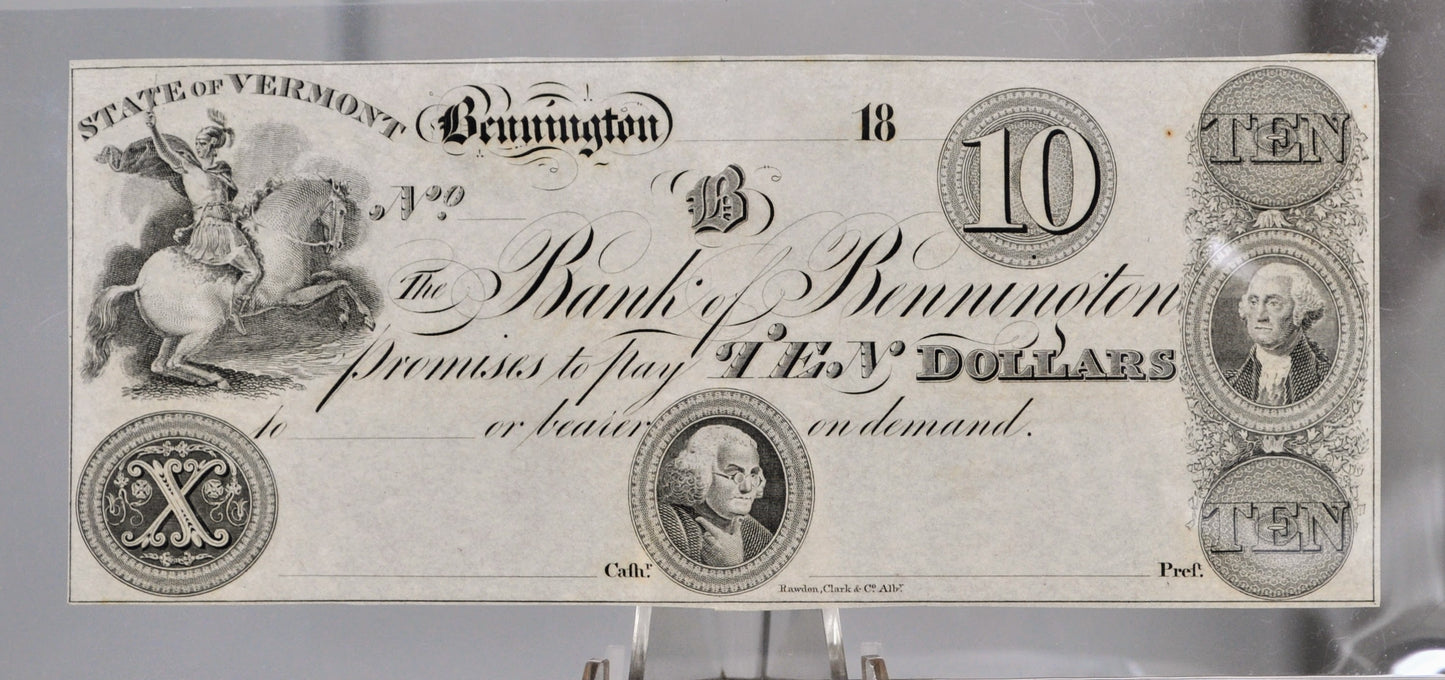 STATE OF VERMONT
Bennington 18
10
TEN
No. B
The Bank of Bennington
promises to pay TEN DOLLARS
to or bearer on demand.
X
TEN
Caſhr. Preſ.
Rawdon, Clark & Co. Alby.